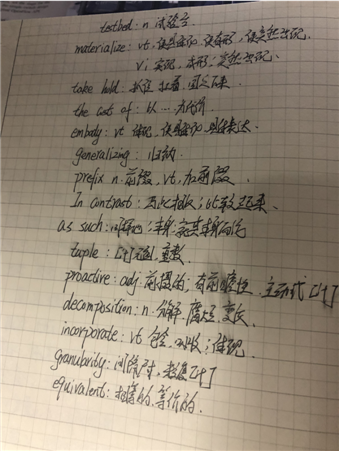 testbed: n. 试验台
materialize: vt. 使具体化, 使有形, 使突然出现.
vi 实现, 成形; 突然出现.
take hold: 抓住
the cost of: 以……为代价
embody: vt 体现, 使具体化, 具体表达.
generalizing: 归纳
prefix n. 前缀, vt, 加前缀
In contrast: 与此相反; 比较起来.
as such: 同样地; 本身, 就其本身而言
tuple: [计] 元组, 重数
proactive: adj. 前摄的, 有前瞻性, 主动式 [计]
decomposition: n. 分解. 腐烂, 变质.
incorporate: vt. 包含, 吸收; 体现.
granularity: 间隔尺寸, [计]
equivalent: 相等的, 等价的.